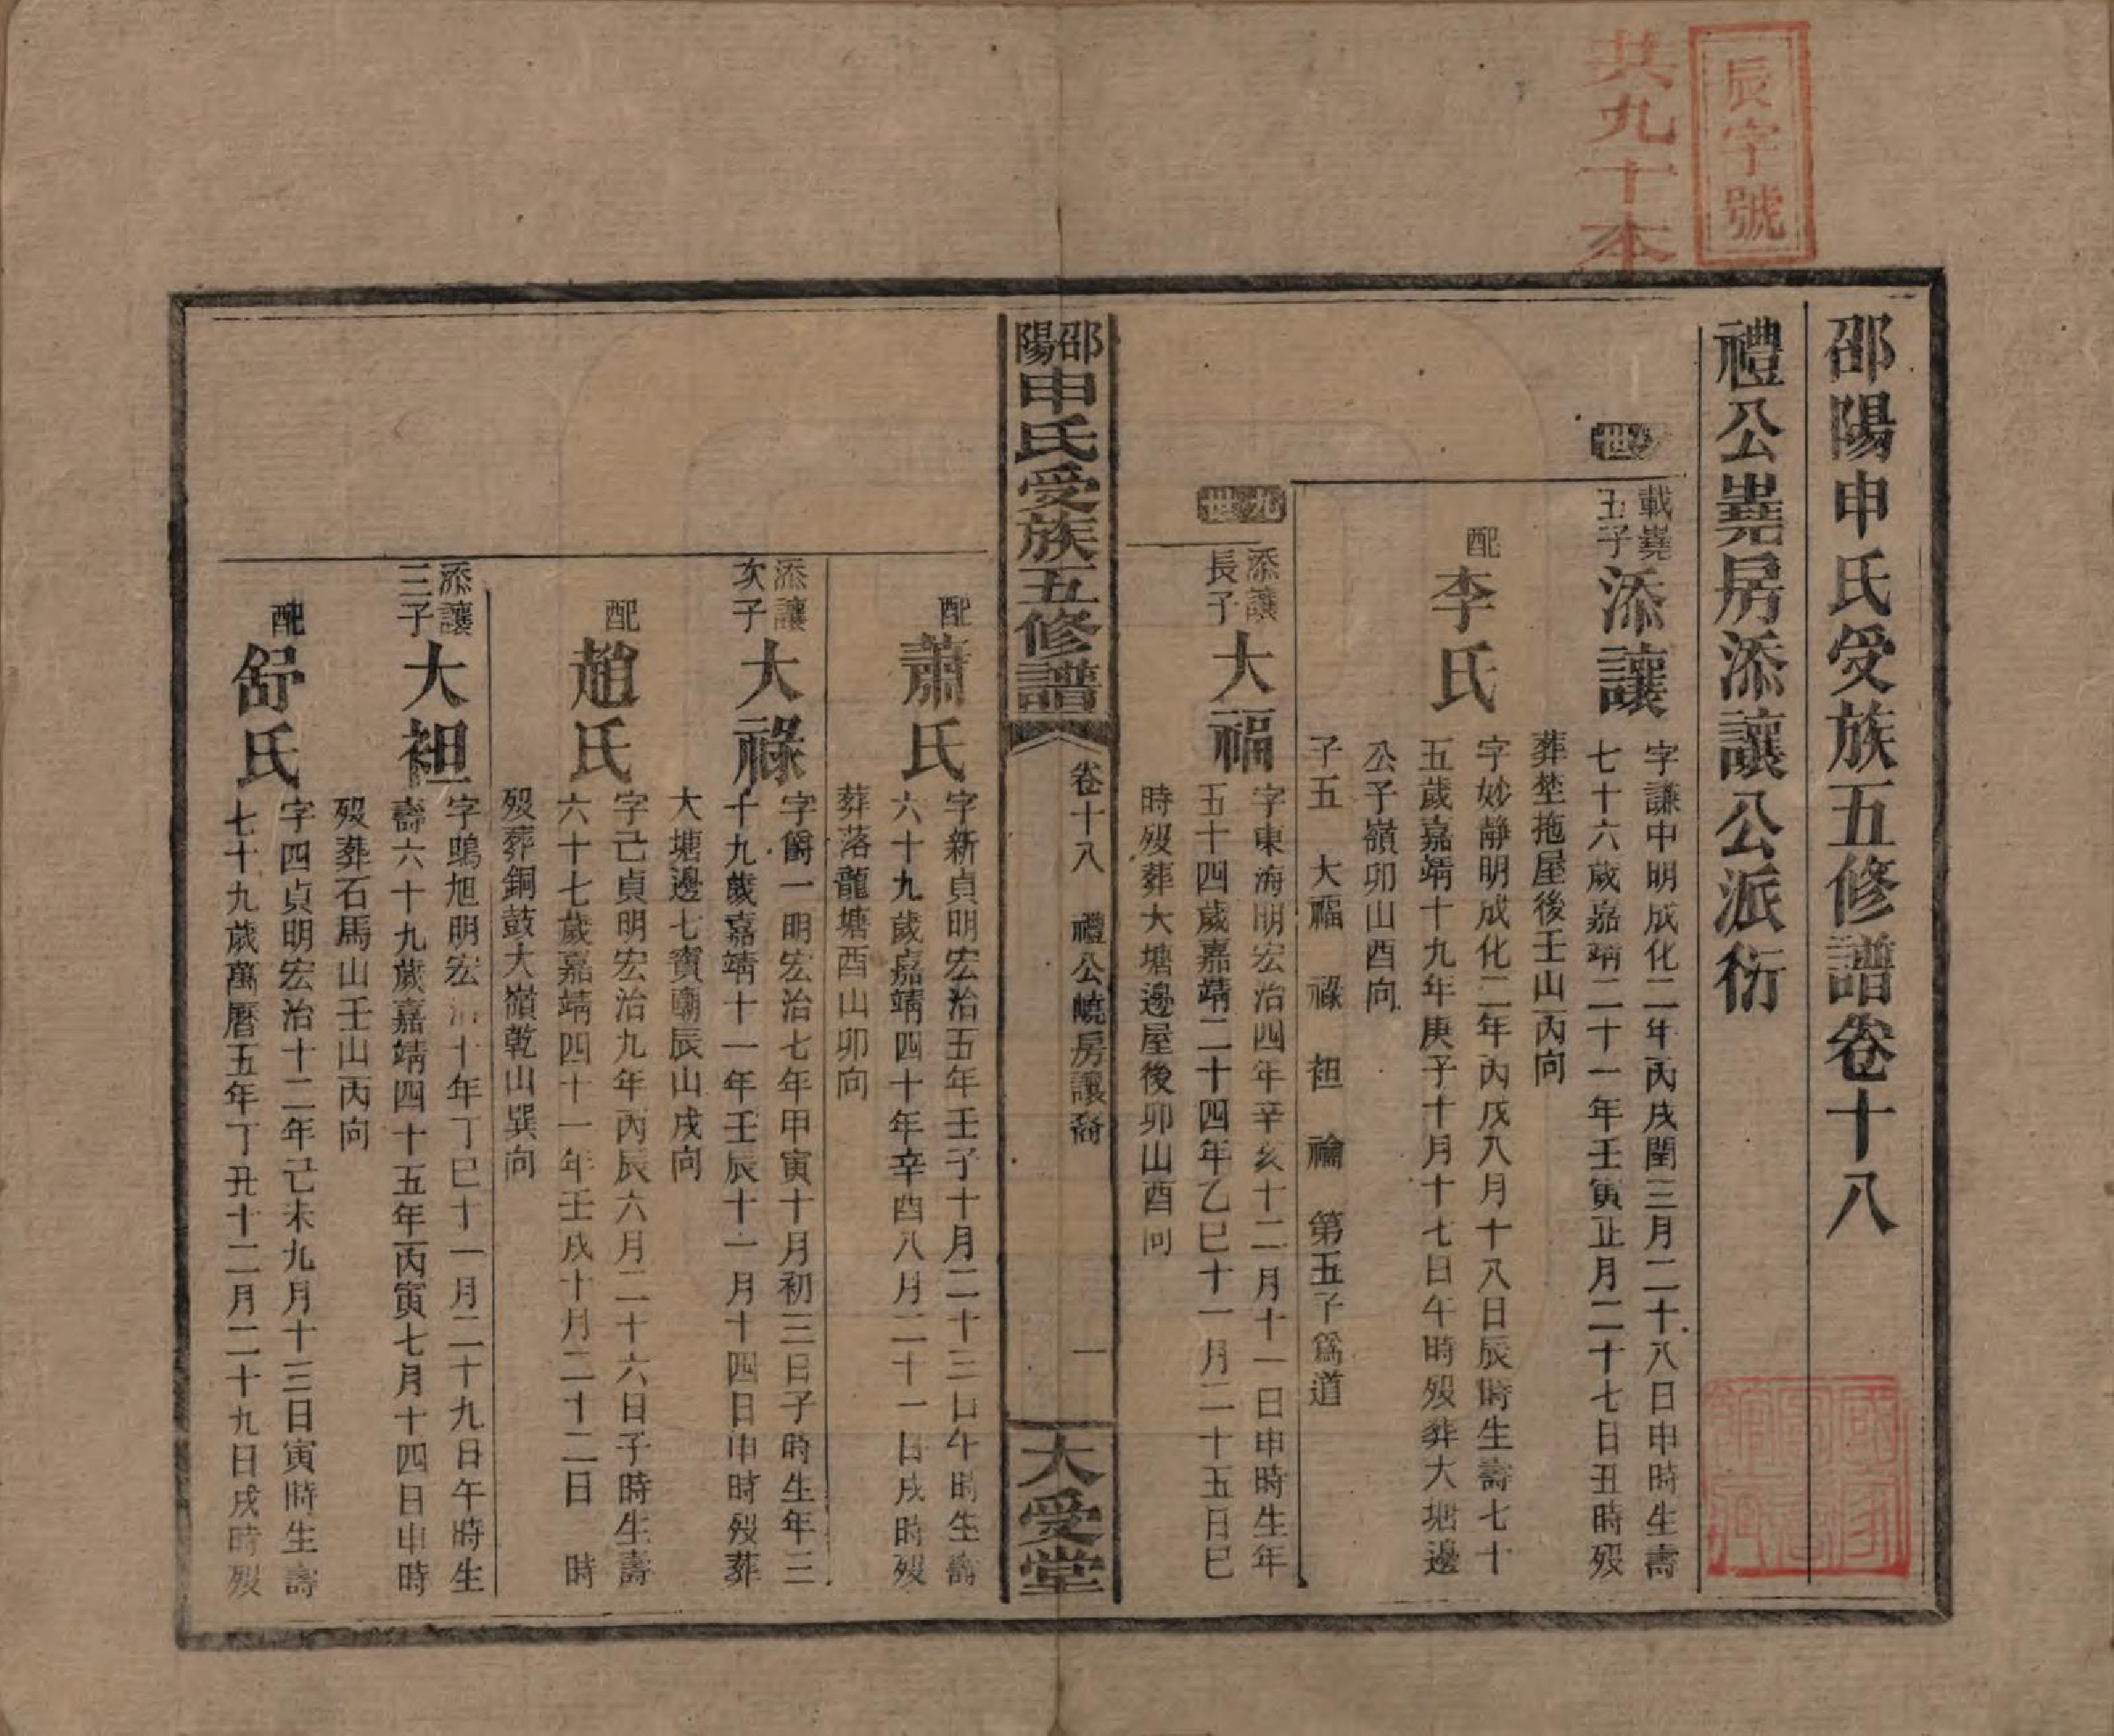 辰字號
共九十本
邵陽申氏受族五修譜卷十八
禮公嶤房添讓公派衍
世
載嶤五子
添讓
字謙中明成化二年丙戌閏三月二十八日申時生壽
七十六歲嘉靖二十一年壬寅正月二十七日丑時歿
葬埜拖屋後壬山丙向
配
李氏
字妙靜明成化二年丙戌八月十八日辰時生壽七十
五歲嘉靖十九年庚子十月十七日午時歿葬大塘邊
公子嶺卯山酉向
子五 大福 祿 袒 禴 第五子爲道
九世
添讓長子
大福
字東海明宏治四年辛亥十二月十一日申時生年
五十四歲嘉靖二十四年乙巳十一月二十五日巳
時歿葬大塘邊屋後卯山酉向
邵陽申氏受族五修譜
卷十八 禮公嶢房讓裔
一
大受堂
配
蕭氏
字新貞明宏治五年壬子十月二十三日午時生壽
六十九歲嘉靖四十年辛酉八月二十一日戌時歿
葬落龍塘酉山卯向
添讓次子
大祿
字爵一明宏治七年甲寅十月初三日子時生年三
十九歲嘉靖十一年壬辰十一月十四日申時歿葬
大塘邊七寶廟辰山戌向
配
趙氏
字己貞明宏治九年丙辰六月二十六日子時生壽
六十七歲嘉靖四十一年壬戌十月二十二日 時
歿葬銅鼓大嶺乾山巽向
添讓三子
大袒
字鵾旭明宏治十年丁巳十一月二十九日午時生
壽六十九歲嘉靖四十五年丙寅七月十四日申時
歿葬石馬山壬山丙向
配
舒氏
字四貞明宏治十二年己未九月十三日寅時生壽
七十九歲萬曆五年丁丑十二月二十九日戌時歿